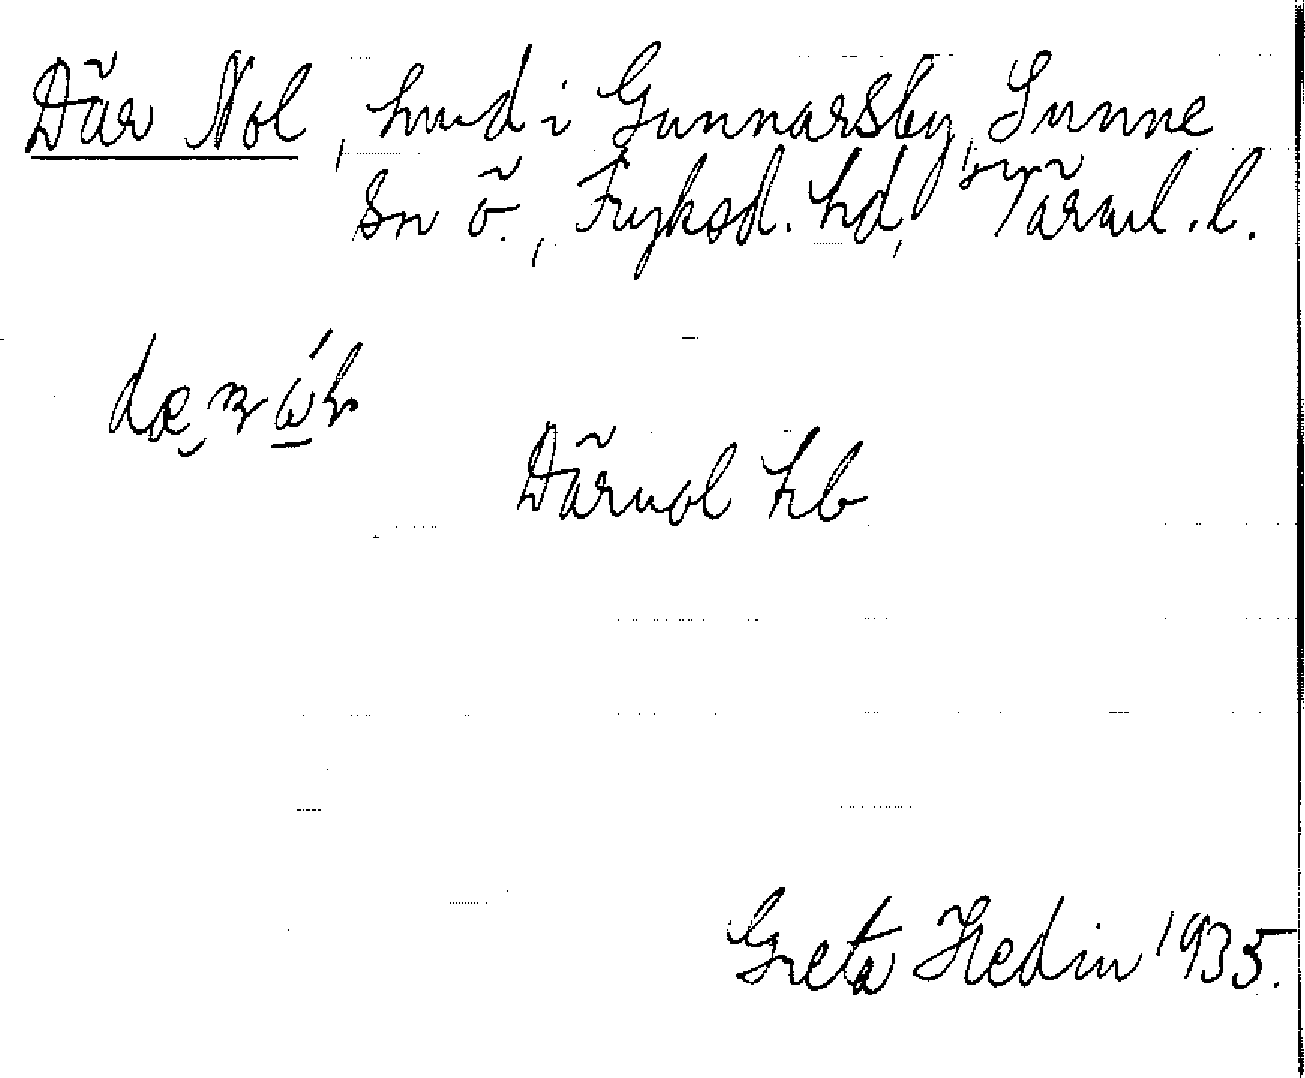 Där Nol, hmd i Gunnarsby, Sunne
sn ö., Fryksd. hd, Värml. l.
Därnol hb
Greta Hedin 1935.